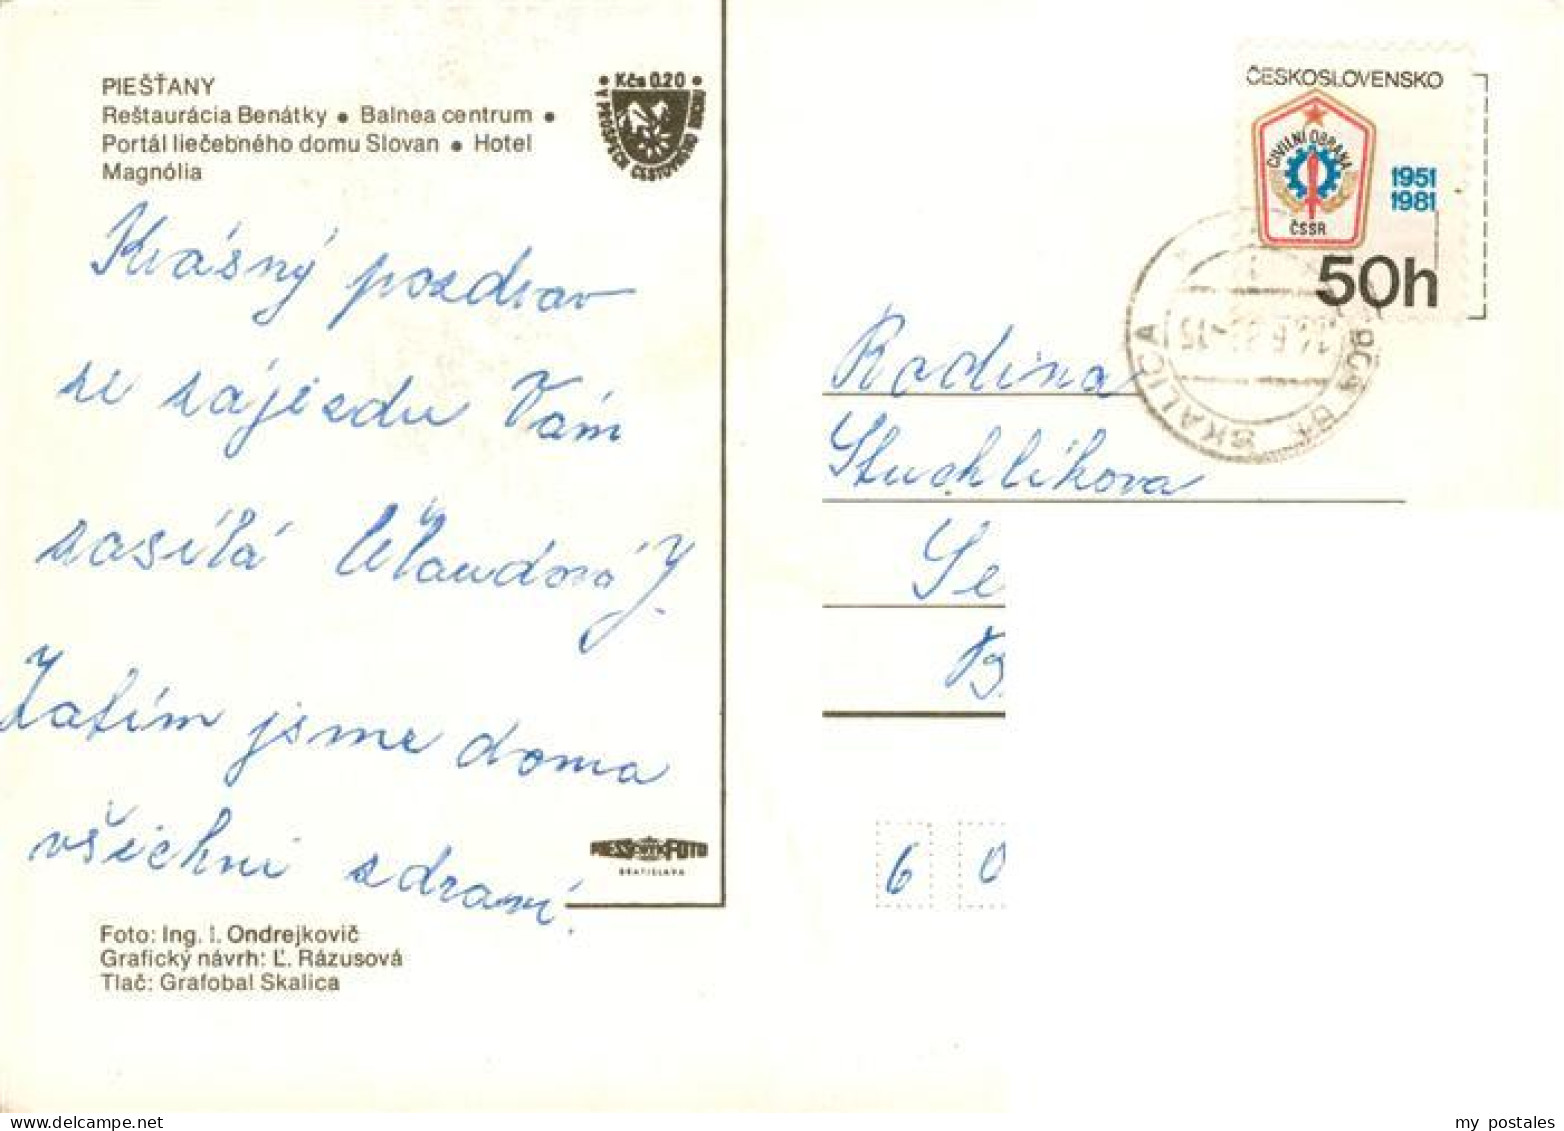 PIEŠŤANY
Reštaurácia Benátky • Balnea centrum •
Portál liečebného domu Slovan • Hotel
Magnólia
• Kčs 0.20 •
V PROSPECH CESTOVNÉHO RUCHU
Krásný pozdrav
ze zájezdu Vám
zasílá Y.
Zatím jsme doma
všichni zdraví.
PRESSFOTO
BRATISLAVA
Foto: Ing. I. Ondrejkovič
Grafický návrh: Ľ. Rázusová
Tlač: Grafobal Skalica
ČESKOSLOVENSKO
CIVILNÍ OBRANA
ČSSR
1951
1981
50h
SKALICA
Rodina
Stuchlíkova
Se
B
6 0
my postales